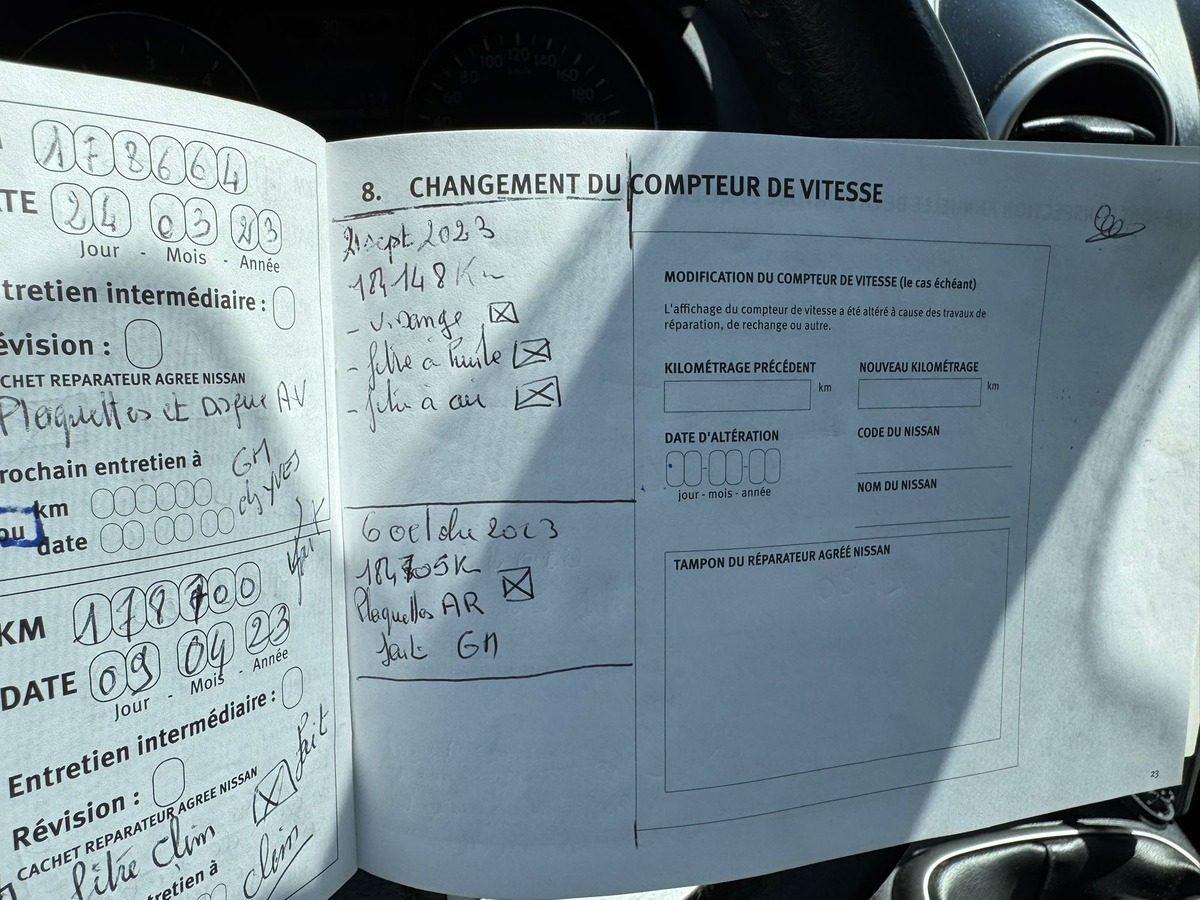 178664
TE 24 03 23
Jour - Mois - Année
tretien intermédiaire :
évision :
CACHET REPARATEUR AGREE NISSAN
Plaquettes et Disque AV
rochain entretien à
GM
km
ou
date
KM 178700
DATE 09 04 23
Jour - Mois - Année
Entretien intermédiaire :
Révision :
fait
CACHET REPARATEUR AGREE NISSAN
filtre Clim
tretien à
clim
8. CHANGEMENT DU COMPTEUR DE VITESSE
21 sept 2023
184148 Km
- Vidange
- filtre à huile
- filtre à air
6 octobre 2023
184705K
Plaquettes AR
fait GM
MODIFICATION DU COMPTEUR DE VITESSE (le cas échéant)
L'affichage du compteur de vitesse a été altéré à cause des travaux de
réparation, de rechange ou autre.
KILOMÉTRAGE PRÉCÉDENT
km
NOUVEAU KILOMÉTRAGE
km
DATE D'ALTÉRATION
jour - mois - année
CODE DU NISSAN
NOM DU NISSAN
TAMPON DU RÉPARATEUR AGRÉÉ NISSAN
23
80
100
120
140
160
180
200